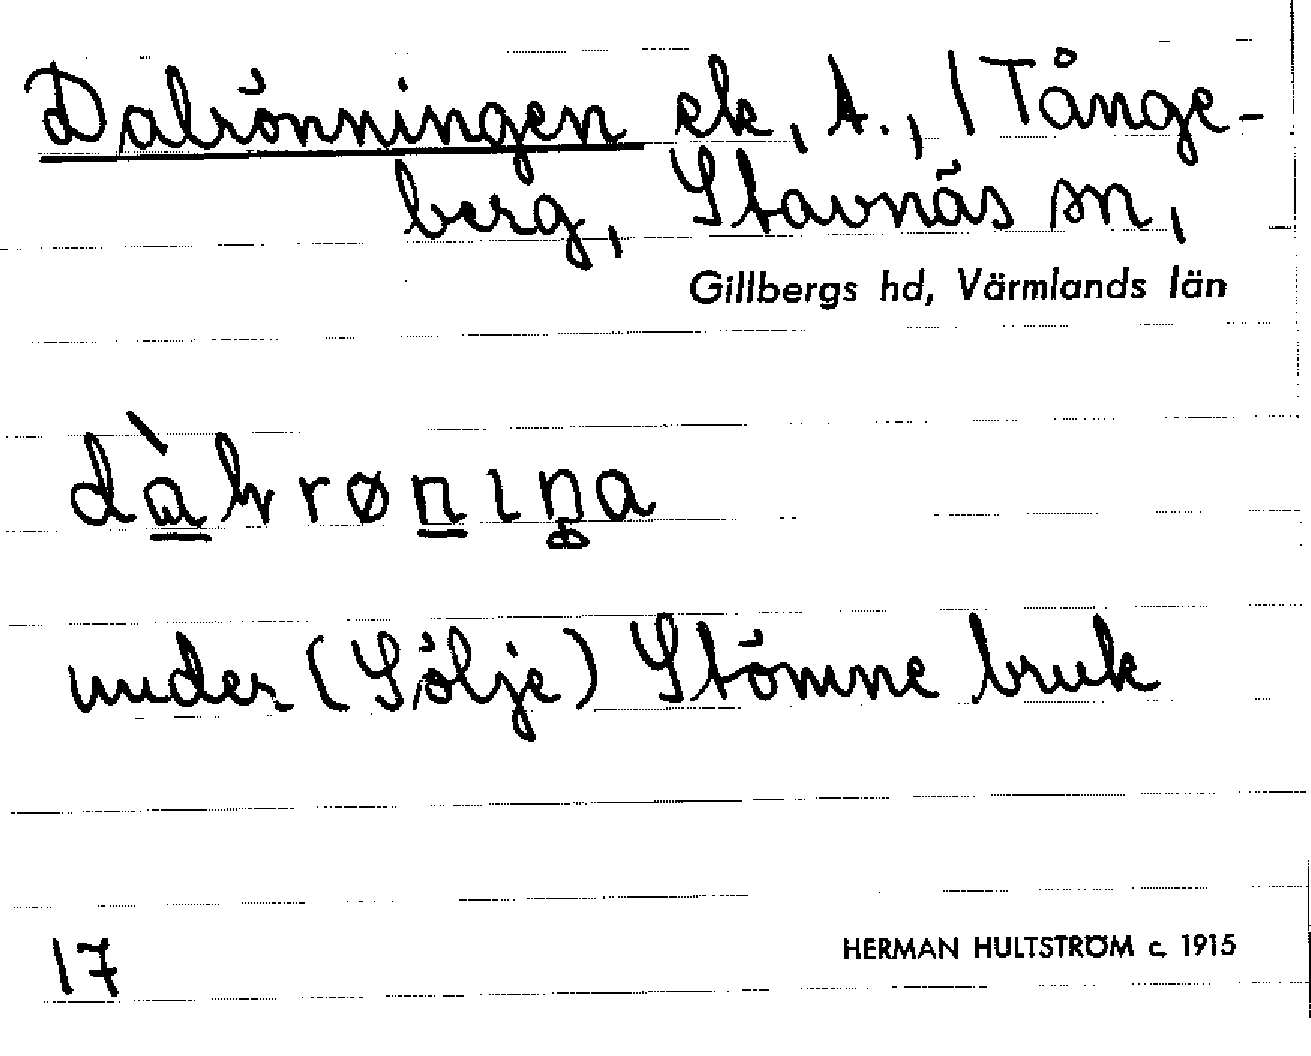 Dalrönningen ek, A., / Tånge-
berg, Stavnäs sn,
Gillbergs hd, Värmlands län
dàlrrønıŋa
under (Sölje) Stömne bruk
17
HERMAN HULTSTRÖM c. 1915